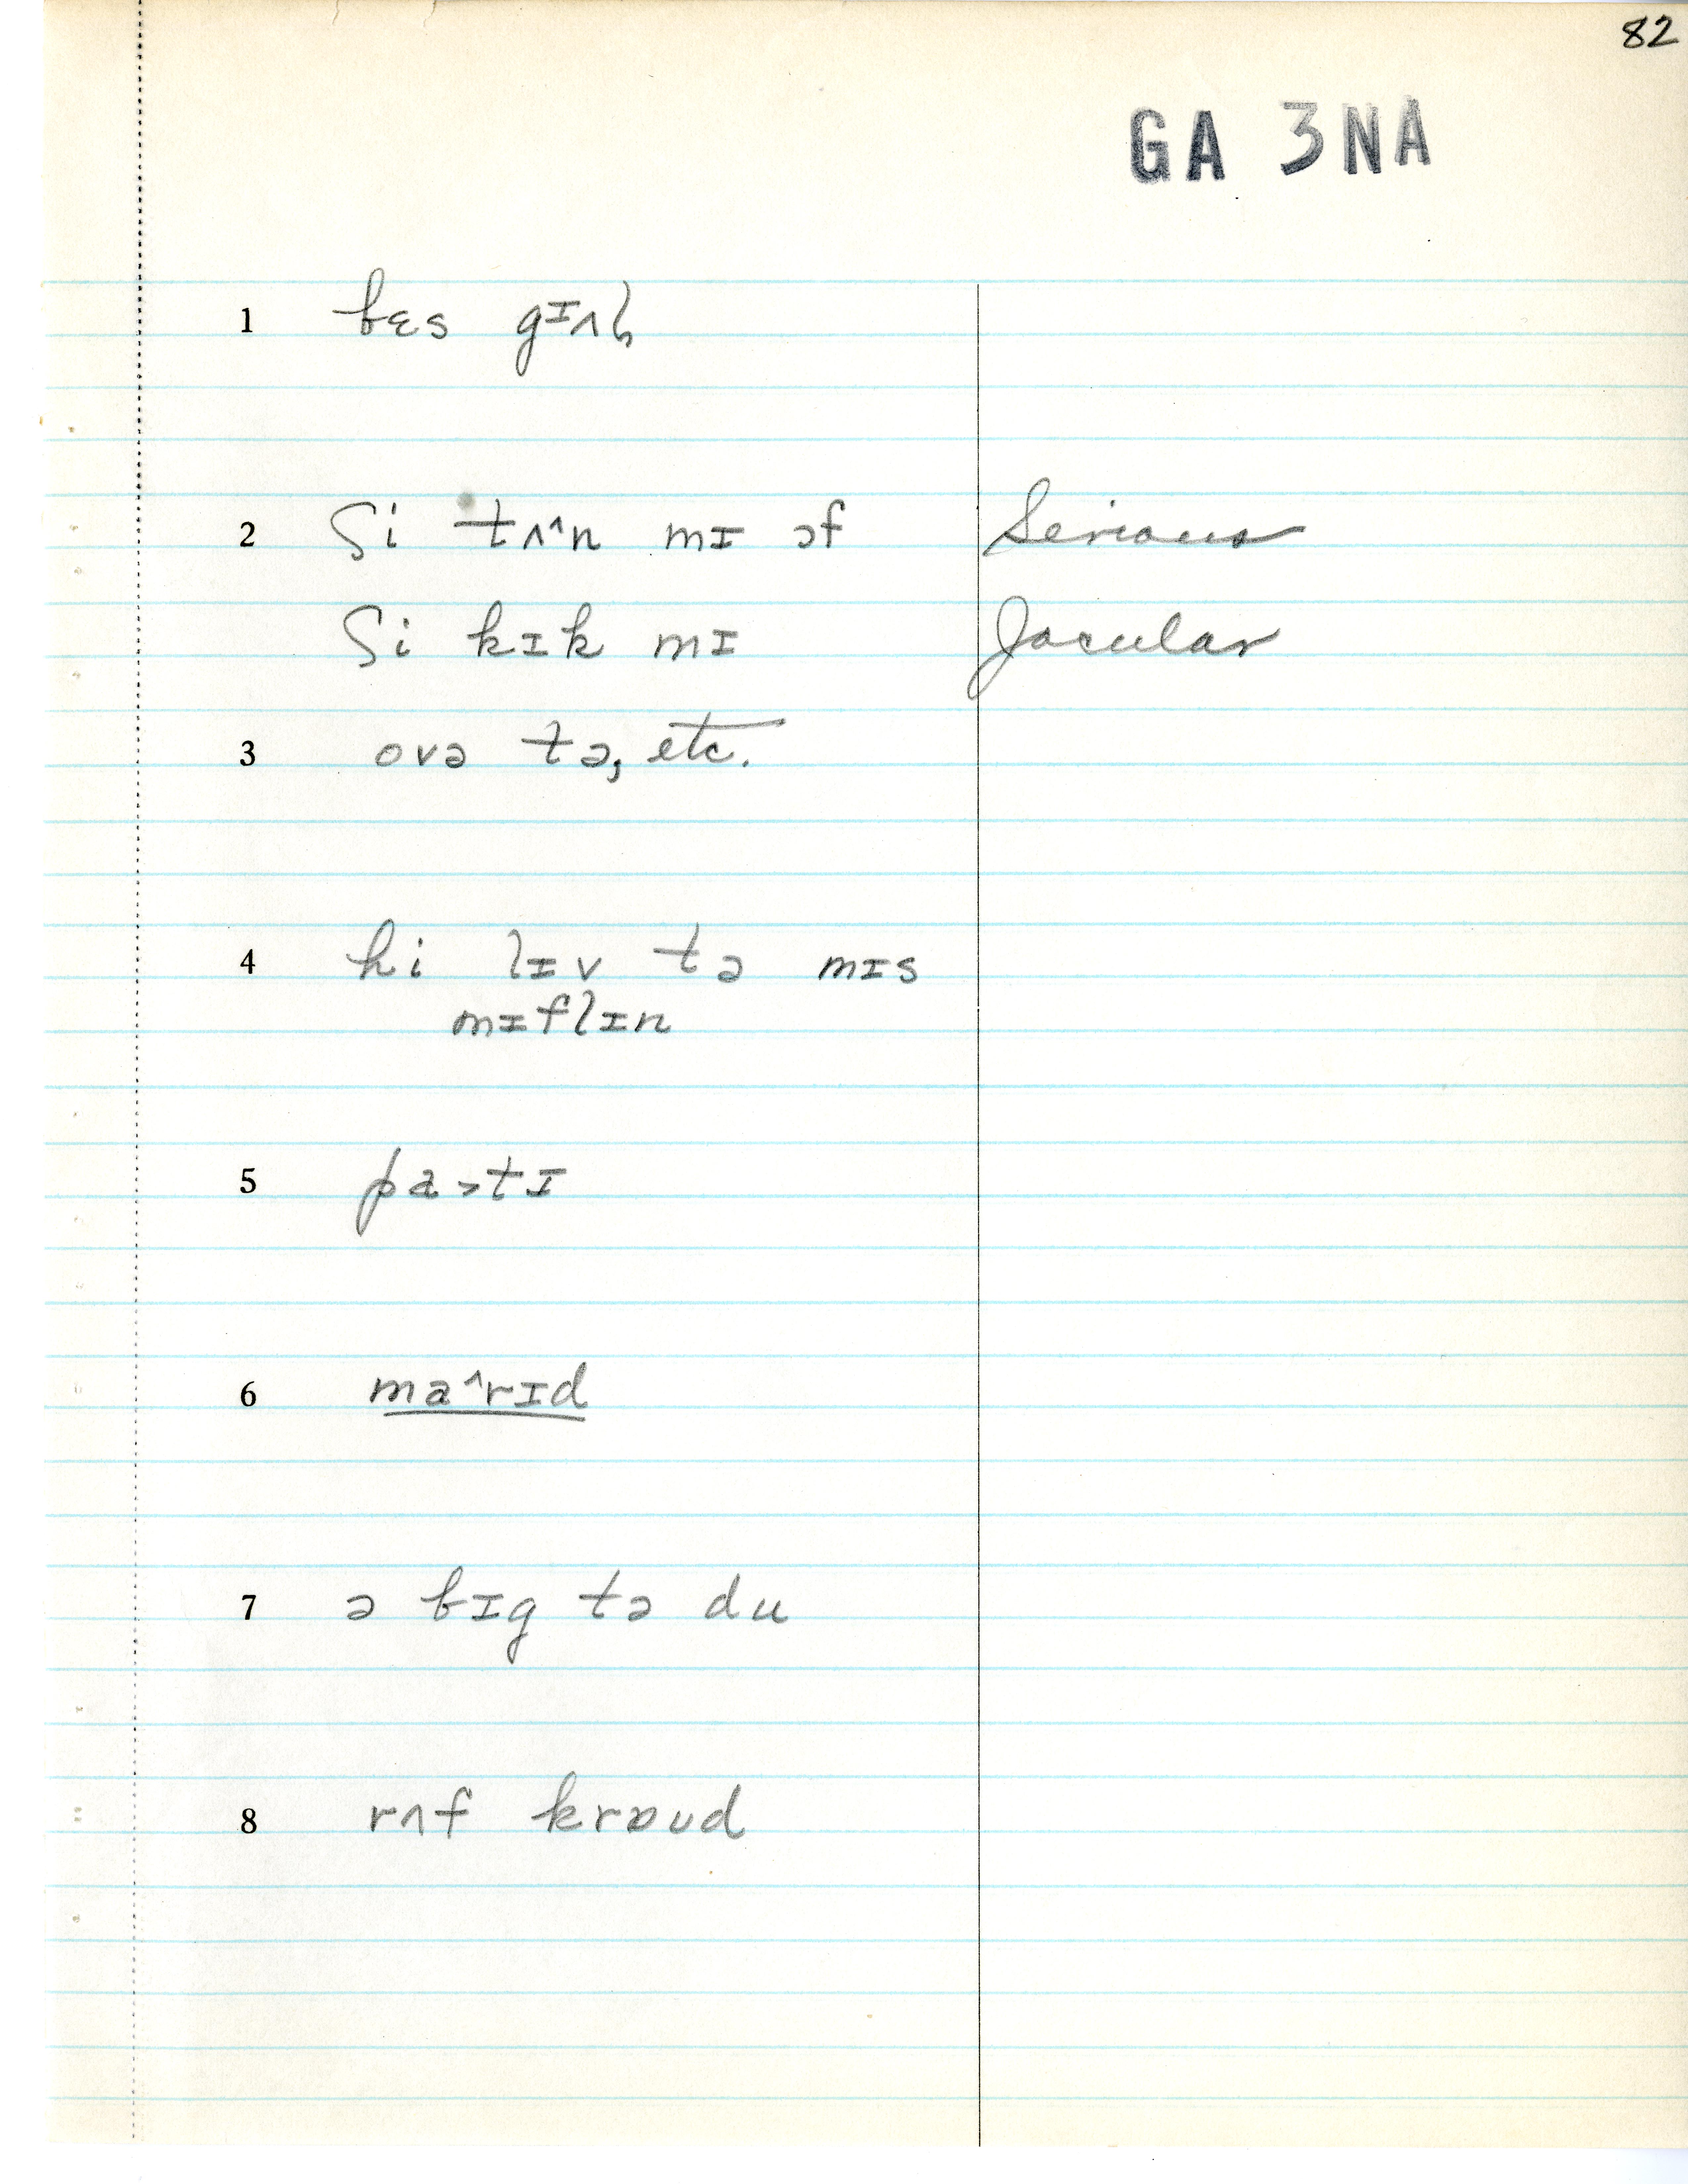 82
GA 3NA
1 bɛs gɪʌl̩
2 ʃi tʌ^n mɪ ɔf Serious
ʃi kɪk mɪ Jocular
3 ovə tə, etc.
4 hi lɪv tə mɪs
mɪflɪn
5 pa>tɪ
6 ma^rɪd
7 ə bɪg tə du
8 rʌf krɒʊd